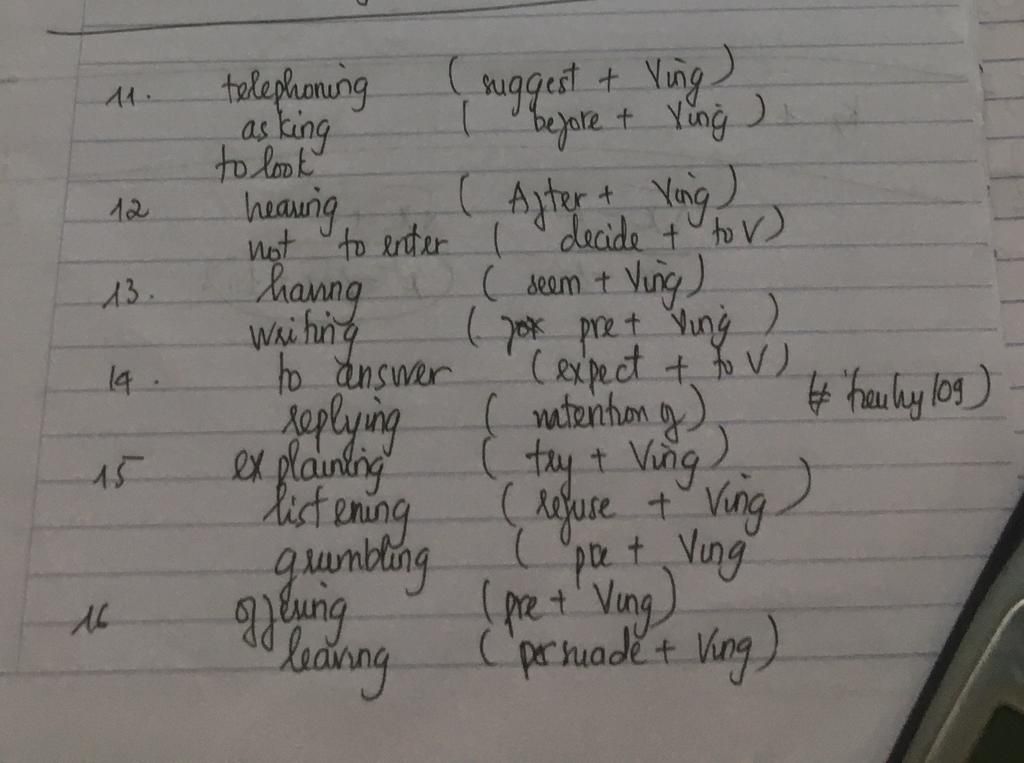 11. telephoning ( suggest + Ving )
asking ( before + Ving )
to look
12 hearing ( After + Ving )
not to enter ( decide + to V )
13. having ( seem + Ving )
writing ( pre + Ving )
14. to answer ( expect + to V )
replying (
15 explaining ( try + Ving )
listening ( refuse + Ving )
grumbling ( pre + Ving
16 offering ( pre + Ving )
leaving ( persuade + Ving )